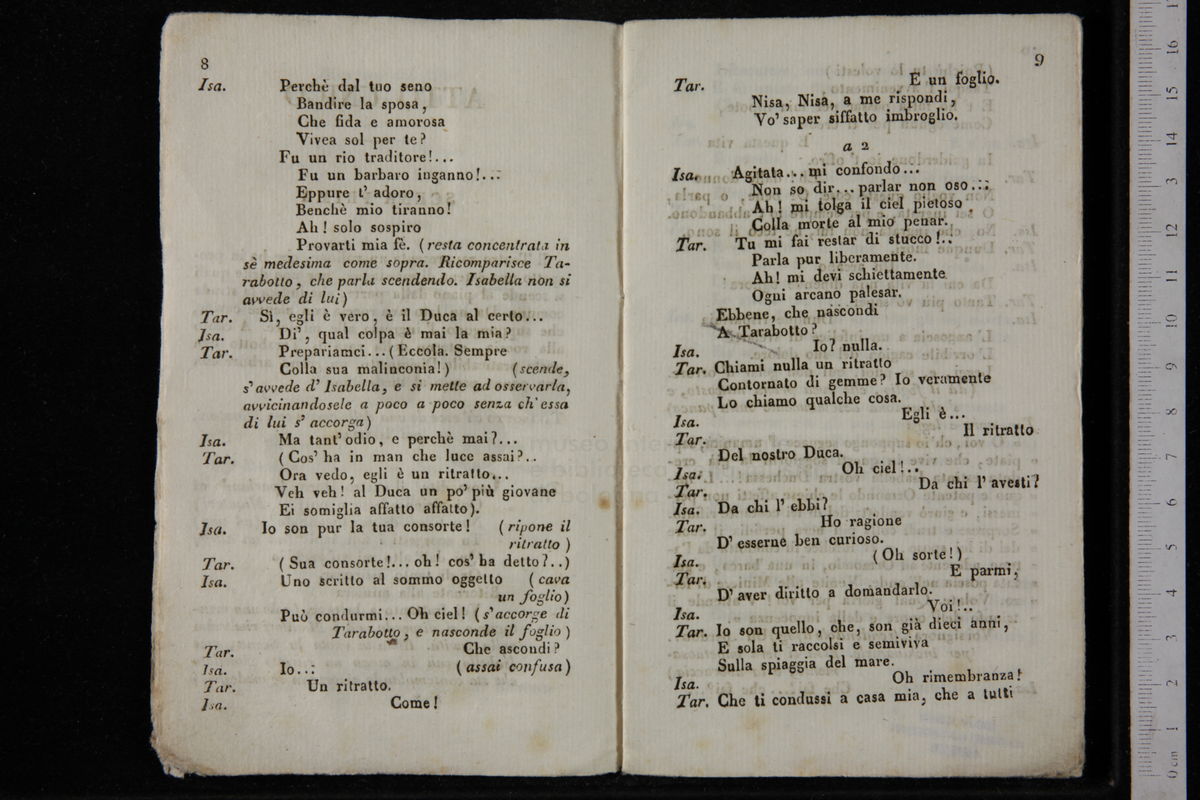 8
Isa. Perchè dal tuo seno
Bandire la sposa,
Che fida e amorosa
Vivea sol per te?
Fu un rio traditore!...
Fu un barbaro inganno!...
Eppure t' adoro,
Benchè mio tiranno!
Ah! solo sospiro
Provarti mia fè. (resta concentrata in
sè medesima come sopra. Ricomparisce Ta-
rabotto, che parla scendendo. Isabella non si
avvede di lui)
Tar. Sì, egli è vero, è il Duca al certo...
Isa. Di', qual colpa è mai la mia?
Tar. Prepariamci... (Eccola. Sempre
Colla sua malinconia!) (scende,
s' avvede d' Isabella, e si mette ad osservarla,
avvicinandosele a poco a poco senza ch' essa
di lui s' accorga)
Isa. Ma tant' odio, e perchè mai?...
Tar. (Cos' ha in man che luce assai?..
Ora vedo, egli è un ritratto...
Veh veh! al Duca un po' più giovane
Ei somiglia affatto affatto).
Isa. Io son pur la tua consorte! (ripone il
ritratto)
Tar. (Sua consorte!... oh! cos' ha detto?..)
Isa. Uno scritto al sommo oggetto (cava
un foglio)
Può condurmi... Oh ciel! (s' accorge di
Tarabotto, e nasconde il foglio)
Tar. Che ascondi?
Isa. Io... (assai confusa)
Tar. Un ritratto.
Isa. Come!
9
Tar. E un foglio.
Nisa, Nisa, a me rispondi,
Vo' saper siffatto imbroglio.
a 2
Isa. Agitata... mi confondo...
Non so dir... parlar non oso...
Ah! mi tolga il ciel pietoso
Colla morte al mio penar.
Tar. Tu mi fai restar di stucco!..
Parla pur liberamente.
Ah! mi devi schiettamente
Ogni arcano palesar.
Ebbene, che nascondi
A Tarabotto?
Isa. Io? nulla.
Tar. Chiami nulla un ritratto
Contornato di gemme? Io veramente
Lo chiamo qualche cosa.
Isa. Egli è...
Tar. Il ritratto
Del nostro Duca.
Isa. Oh ciel!..
Tar. Da chi l' avesti?
Isa. Da chi l' ebbi?
Tar. Ho ragione
D' esserne ben curioso.
Isa. (Oh sorte!)
Tar. E parmi,
D' aver diritto a domandarlo.
Isa. Voi!..
Tar. Io son quello, che, son già dieci anni,
E sola ti raccolsi e semiviva
Sulla spiaggia del mare.
Isa. Oh rimembranza!
Tar. Che ti condussi a casa mia, che a tutti